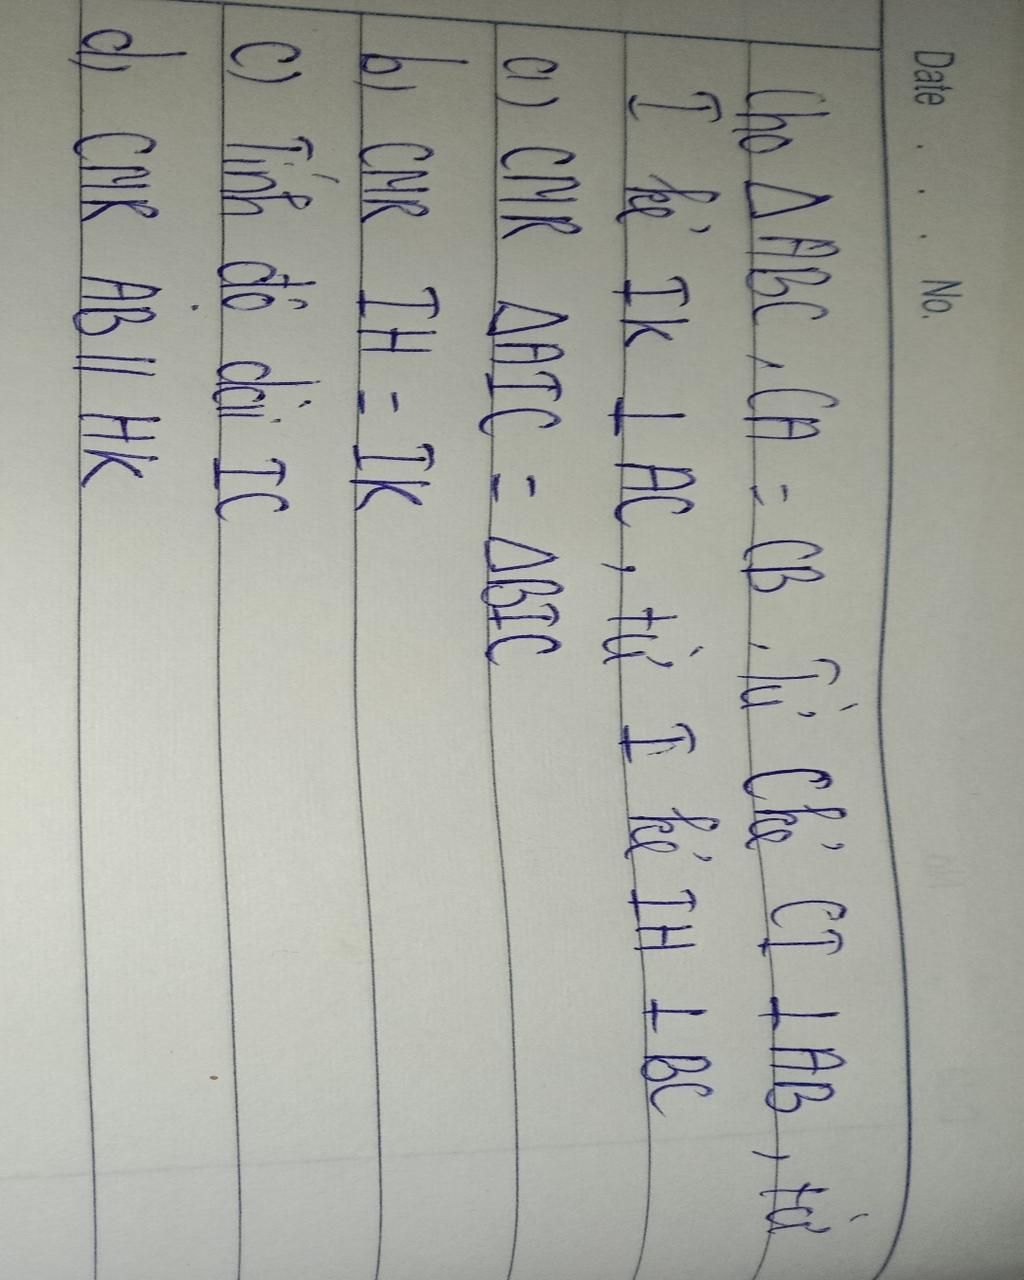 Date . . . No.
Cho Δ ABC, CA = CB. Từ C kẻ CI ⊥ AB, từ
I kẻ IK ⊥ AC, từ I kẻ IH ⊥ BC
a) CMR ΔAIC = ΔBIC
b) CMR IH = IK
c) Tính độ dài IC
d) CMR AB || HK